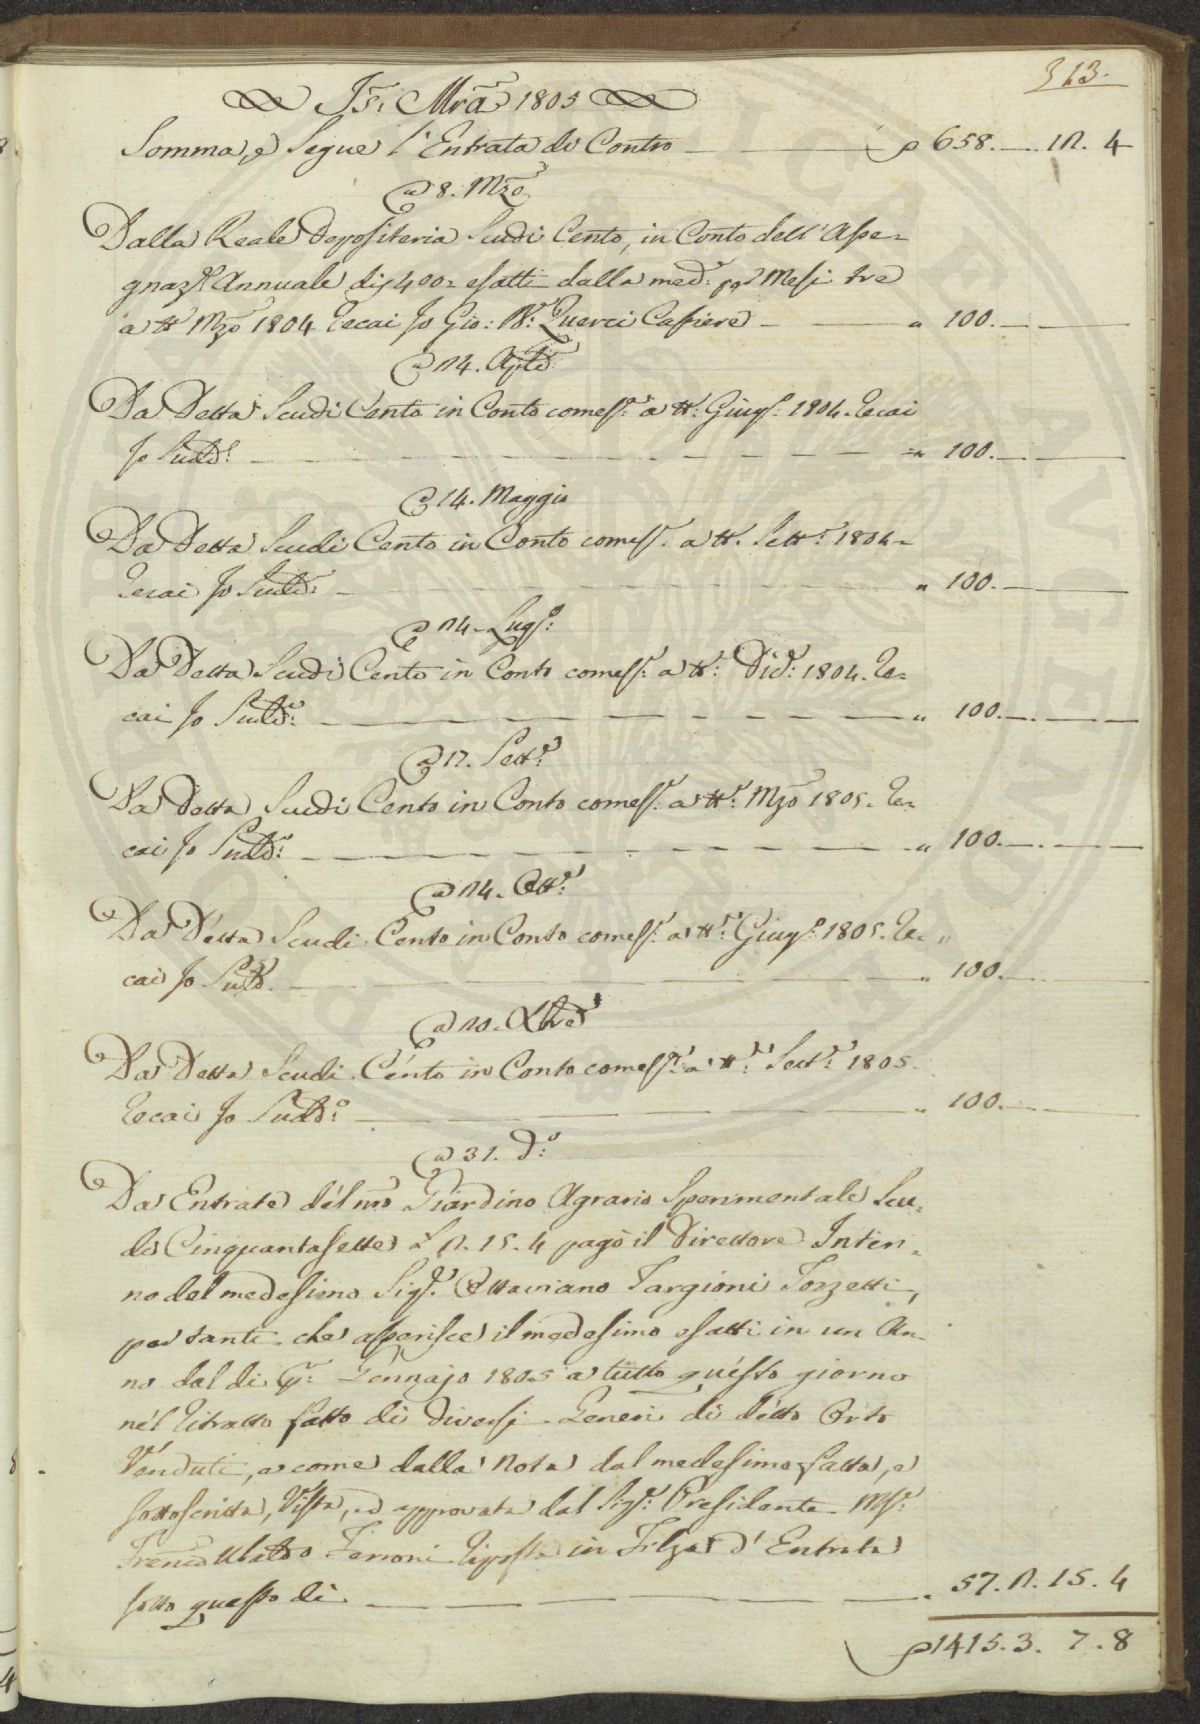 313.
Js. Mra 1805
Somma, e Segue l'Entrata di Contro — 658. — . 12. 4
a 8. Mzo
Dalla Reale Depositeria Scudi Cento, in Conto dell'Asse-
gnaz.e Annuale di 400 = esatti dalla med.a per Mesi tre
a tt.o Mzo 1804 Recai Io Gio: B.a Querci Cassiere — " 100. —
a 14. Aple
Da Detta Scudi Cento in Conto come s.a a tt.o Giug.o 1804. Recai
Io Sudd.o — " 100. —
a 14. Maggio
Da Detta Scudi Cento in Conto come s.a a tt.o Sett.e 1804 -
Recai Io Sudd.o — " 100. —
a 14. Lug.o
Da Detta Scudi Cento in Conto come s.a a tt.o Dic.e 1804. Re-
cai Io Sudd.o — " 100. —
a 12. Sett.e
Da Detta Scudi Cento in Conto come s.a a tt.o Mzo 1805. Re-
cai Io Sudd.o — " 100. —
a 14. Ott.e
Da Detta Scudi Cento in Conto come s.a a tt.o Giug.o 1805. Re-
cai Io Sudd.o — " 100. —
a 10. Xbre
Da Detta Scudi Cento in Conto come s.a a tt.o Sett.e 1805.
Recai Io Sudd.o — " 100. —
a 31. D.o
Da Entrate del nro Giardino Agrario Sperimentale Scu-
di Cinquantasette 15. 4 pagò il Direttore Inter-
no del medesimo Sig.r Ottaviano Targioni Tozzetti,
per tanti che asserisce il medesimo esatti in un An-
no dal dì p.o Gennajo 1805 a tutto questo giorno
nel Ritratto fatto di diversi Generi di detto Orto
Venduti, e come dalla Nota dal medesimo fatta, e
sottoscritta, Vista, ed approvata dal Sig.r Presidente
Ubaldo Feroni Riposta in Filza d'Entrata
sotto questo dì — 57. 15. 4
1415. 3. 7. 8